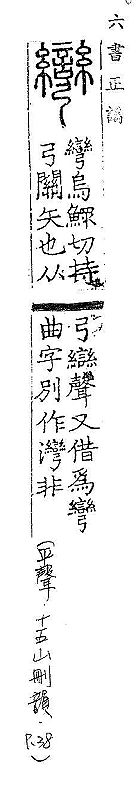 六書正譌
彎
彎烏鰥切持
弓關矢也从
弓䜌聲又借爲彎
曲字別作灣非
(平聲·十五山刪韻·P.38)